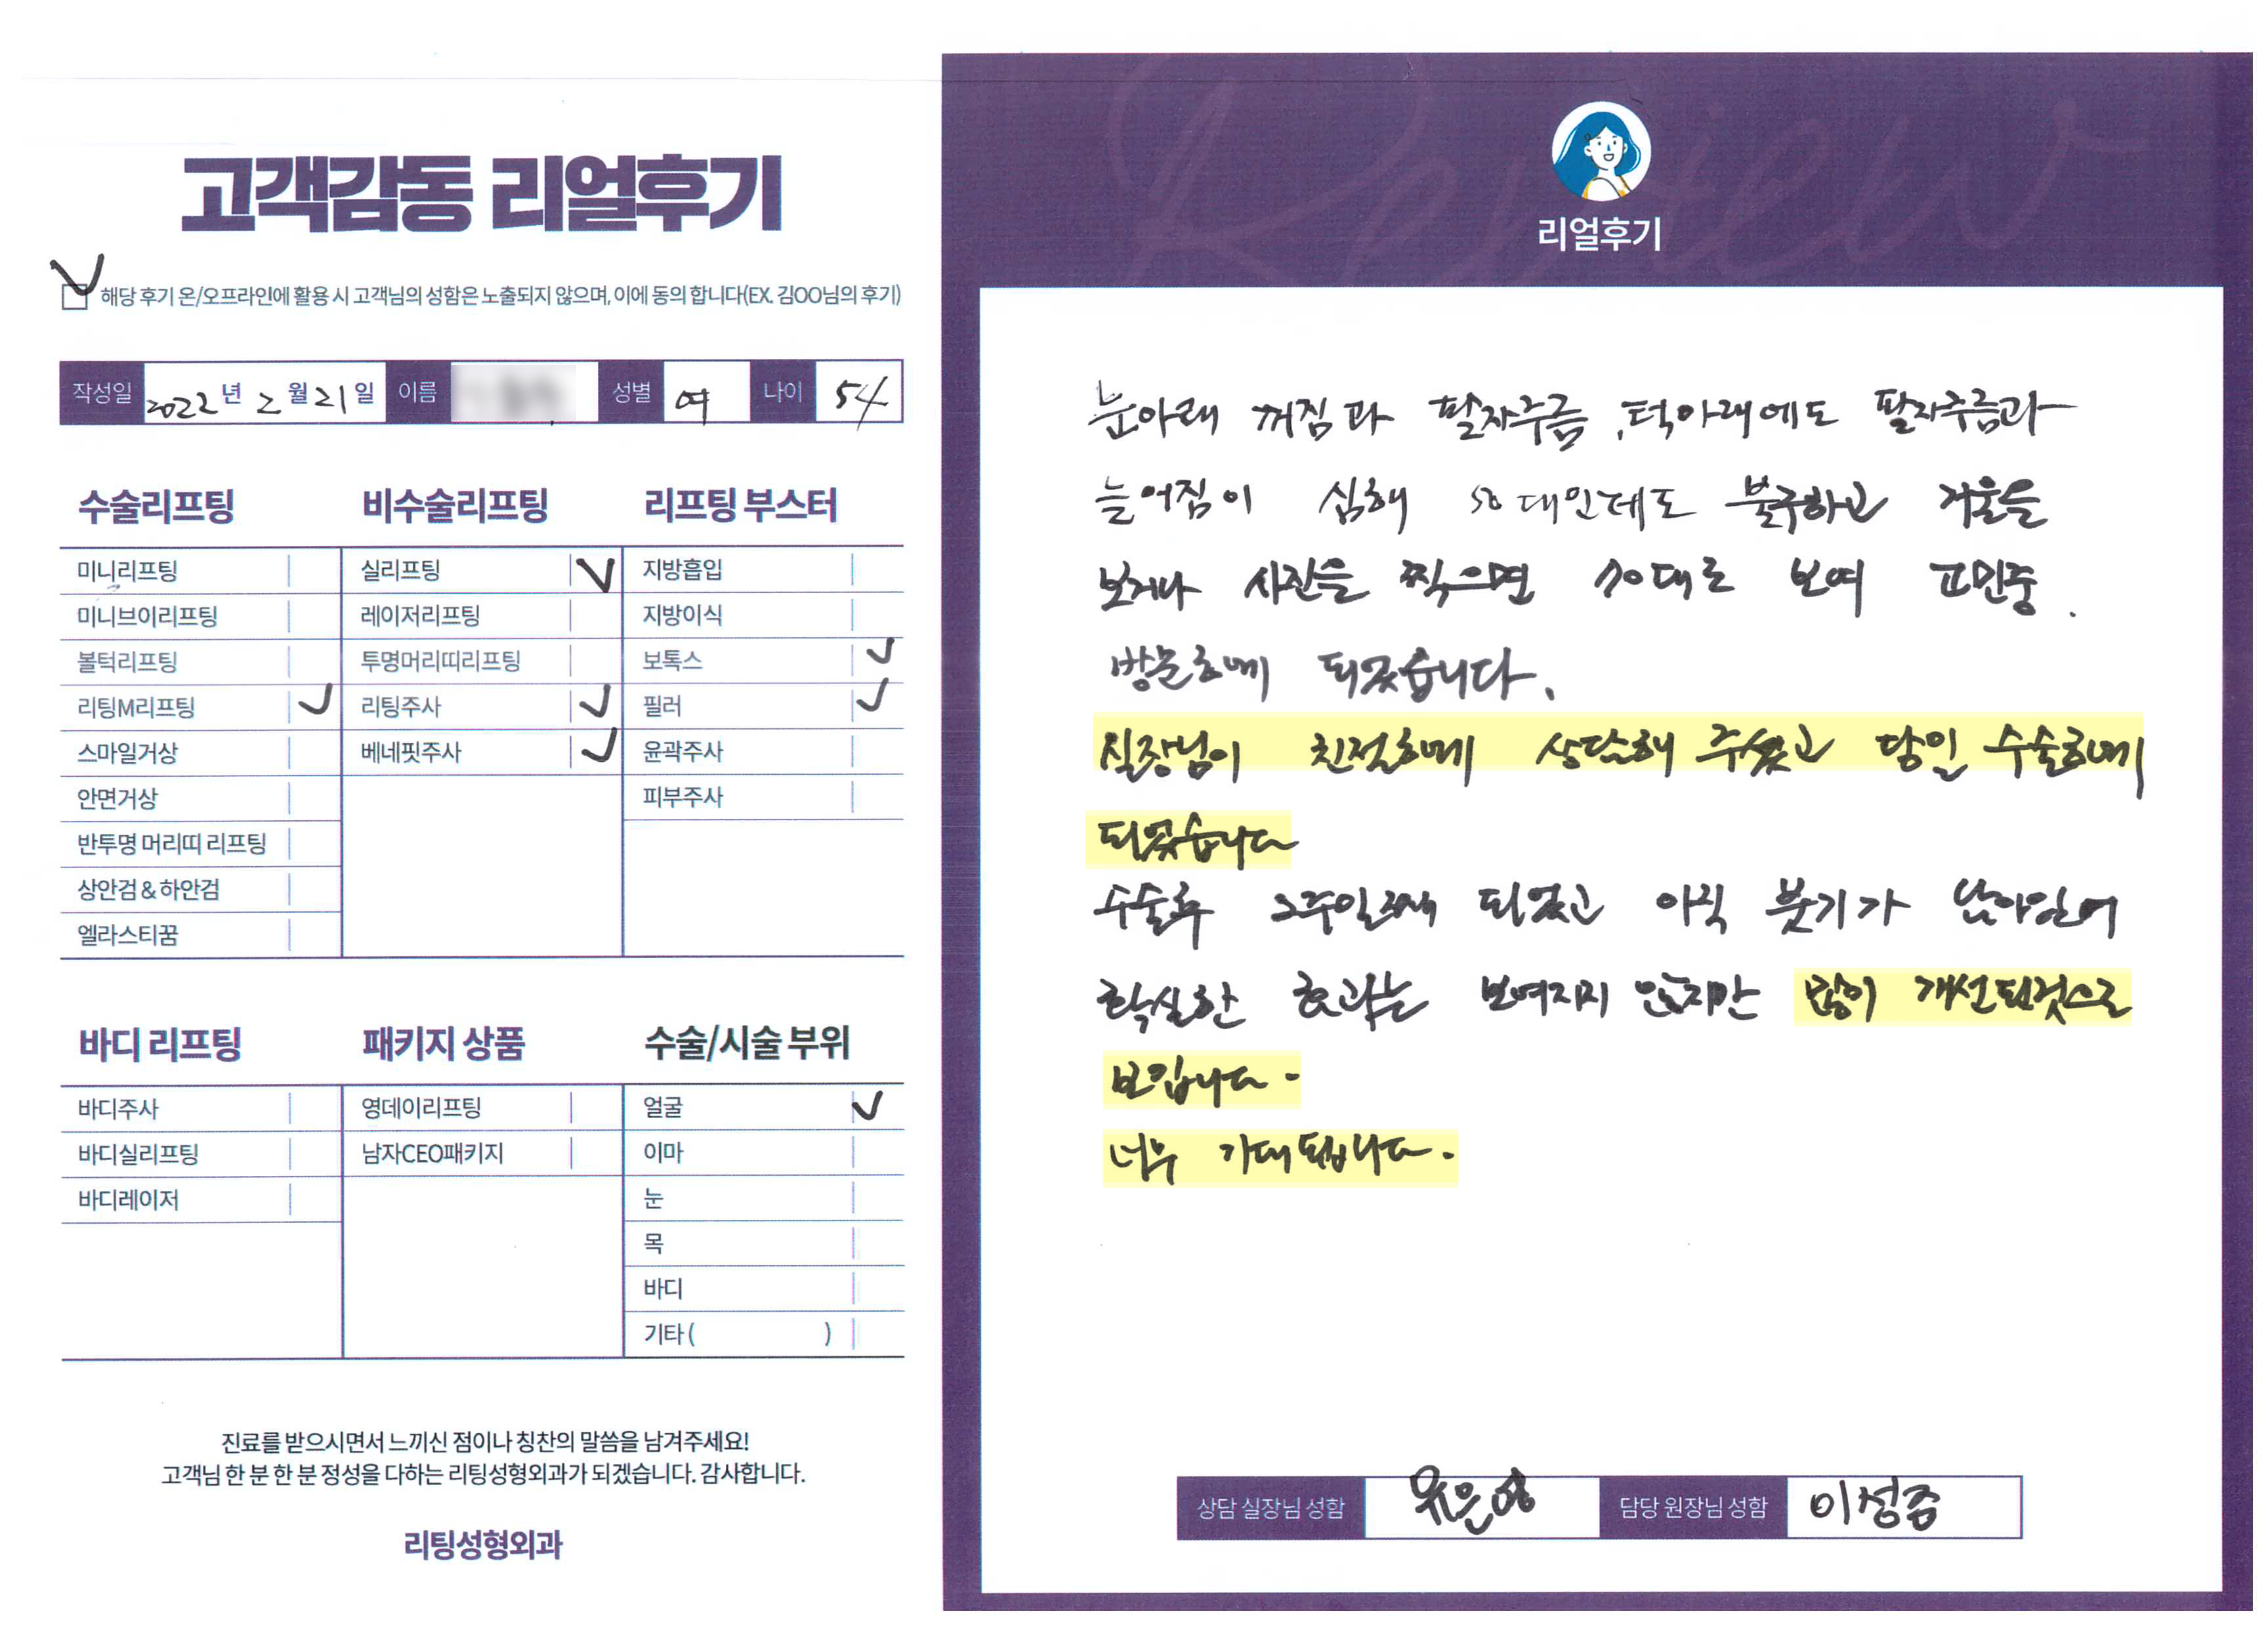 고객감동 리얼후기
해당 후기 온/오프라인에 활용 시 고객님의 성함은 노출되지 않으며, 이에 동의 합니다(EX. 김OO님의 후기)
작성일 2022년 2월 21일 이름 성별 여 나이 54
수술리프팅
미니리프팅
미니브이리프팅
볼턱리프팅
리팅M리프팅
스마일거상
안면거상
반투명 머리띠 리프팅
상안검 & 하안검
엘라스티꿈
비수술리프팅
실리프팅
레이저리프팅
투명머리띠리프팅
리팅주사
베네핏주사
리프팅 부스터
지방흡입
지방이식
보톡스
필러
윤곽주사
피부주사
바디 리프팅
바디주사
바디실리프팅
바디레이저
패키지 상품
영데이리프팅
남자CEO패키지
수술/시술 부위
얼굴
이마
눈
목
바디
기타 ( )
진료를 받으시면서 느끼신 점이나 칭찬의 말씀을 남겨주세요!
고객님 한 분 한 분 정성을 다하는 리팅성형외과가 되겠습니다. 감사합니다.
리팅성형외과
Review
리얼후기
눈아래 꺼짐과 팔자주금, 턱아래에도 팔자주금과
늘어짐이 심해 50대인데도 불구하고 거울을
보거나 사진을 찍으면 70대로 보여 고민중.
방문하게 되었습니다.
실장님이 친절하게 상담해 주셨고 당일 수술하게
되었습니다
수술후 2주일째 되었고 아직 붓기가 남아있어
확실한 효과는 보여지지 않지만 많이 개선된것으로
보입니다.
너무 기대됩니다.
상담 실장님 성함 유은영 담당 원장님 성함 이성준